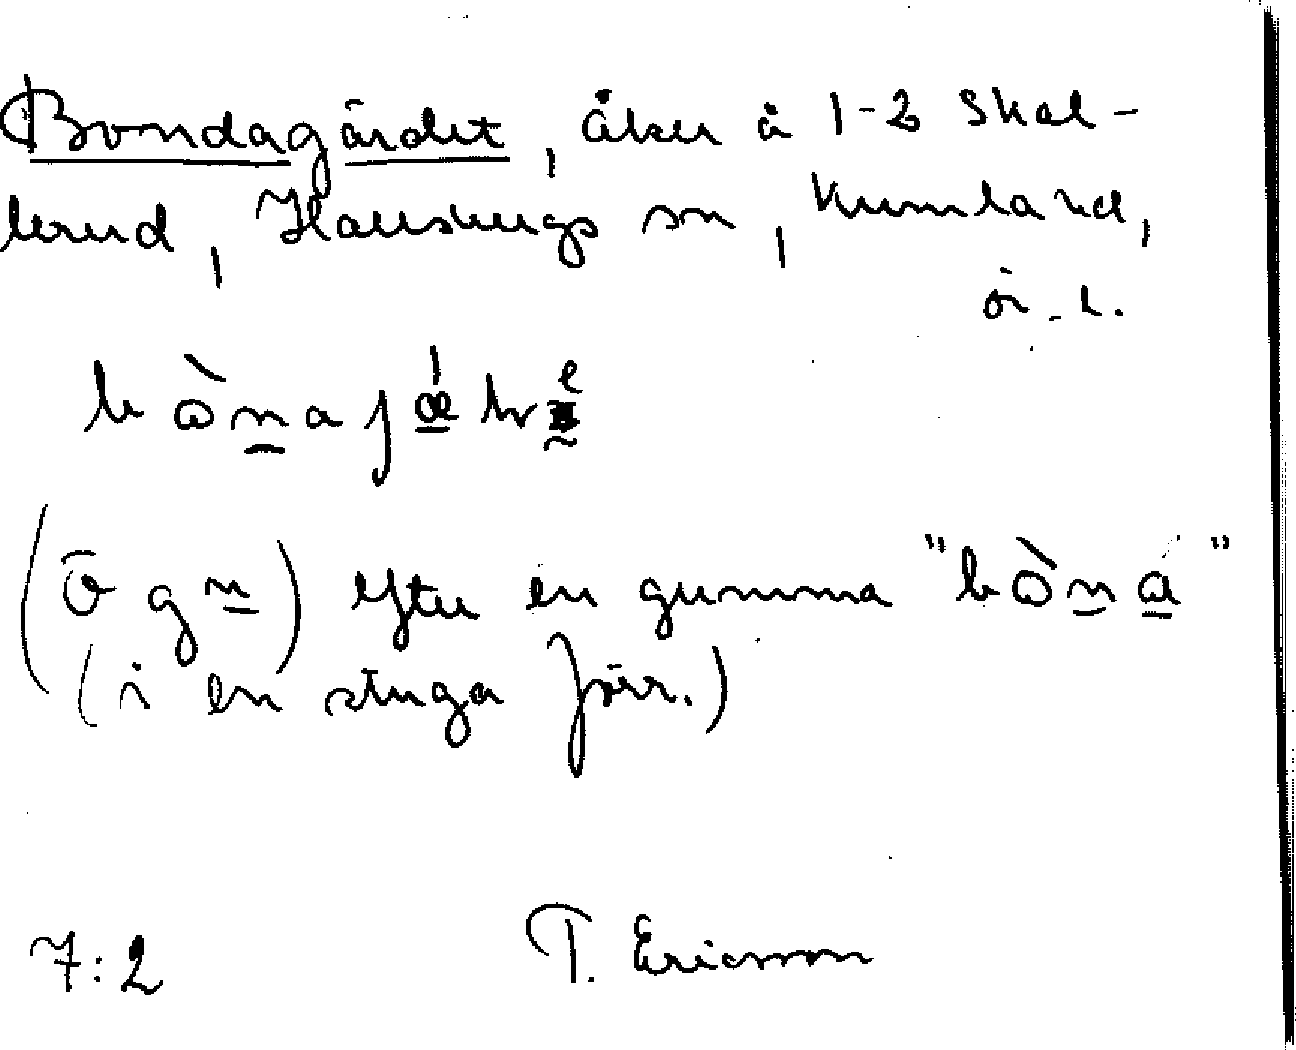 Bondagärdet, åker å 1-2 Skal-
lerud, Hallsbergs sn, Kumla hd,
ör. l.
b ò n a j ǽ ḷ e
(ō g n) efter en gumma "b ò n a"
(i en stuga förr.)
7:2 T. Ericsson